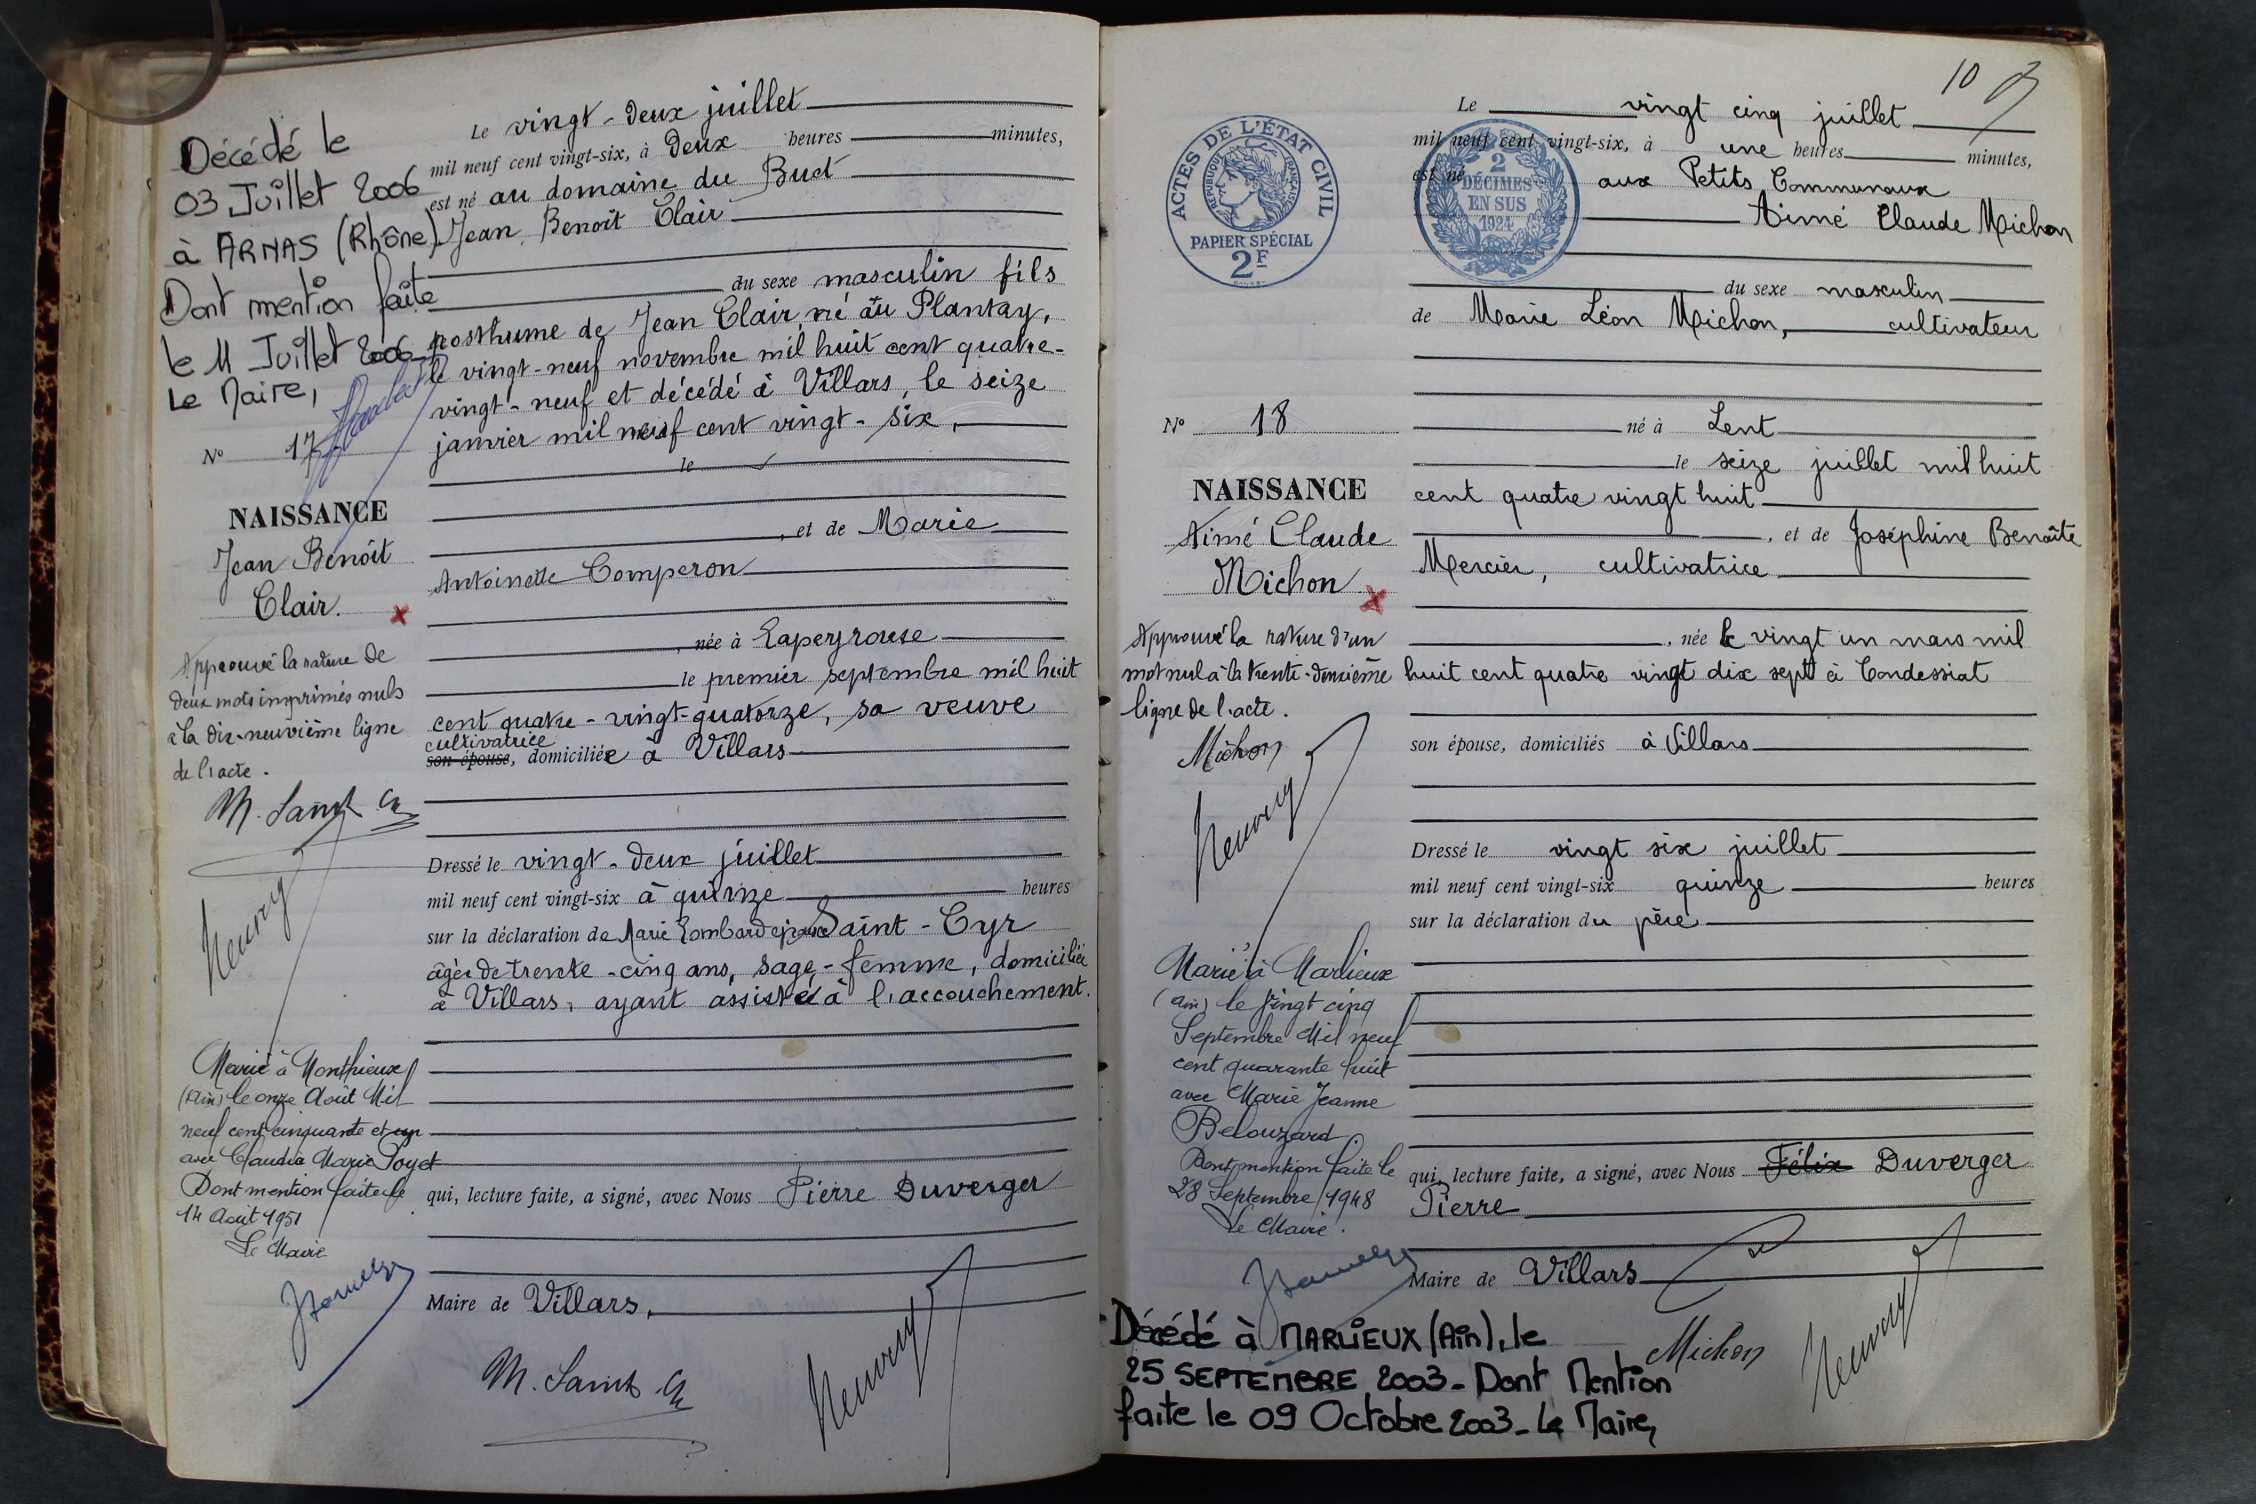 Décédé le
03 Juillet 2006
à ARNAS (Rhône)
Dont mention faite
le 11 Juillet 2006
Le Maire,
N° 17
NAISSANCE
Jean Benoît
Clair.
Approuvé la rature de
deux mots imprimés nuls
à la dix-neuvième ligne
de l'acte.
M. Saint Cyr
Marié à Monthieux
(Ain) le onze Août Mil
neuf cent cinquante et un
avec Claudia Marie Poyet
Dont mention faite le
14 Août 1951
Le Maire
Le vingt-deux juillet
mil neuf cent vingt-six, à deux heures minutes,
est né au domaine du Buct
Jean Benoît Clair
du sexe masculin fils
posthume de Jean Clair, né au Plantay,
le vingt-neuf novembre mil huit cent quatre-
vingt-neuf et décédé à Villars, le seize
janvier mil neuf cent vingt-six,
le
, et de Marie
Antoinette Comperon
, née à Lapeyrouse
le premier septembre mil huit
cent quatre-vingt-quatorze, sa veuve
cultivatrice
son épouse, domiciliée à Villars
Dressé le vingt-deux juillet
mil neuf cent vingt-six à quinze heures
sur la déclaration de Marie Lombard épouse Saint-Cyr
âgée de trente-cinq ans, sage-femme, domiciliée
à Villars, ayant assisté à l'accouchement.
qui, lecture faite, a signé, avec Nous Pierre Duverger
Maire de Villars,
M. Saint Cyr
10
ACTES DE L'ÉTAT CIVIL
RÉPUBLIQUE FRANÇAISE
PAPIER SPÉCIAL
2F
2
DÉCIMES
EN SUS
1924
N° 18
NAISSANCE
Aimé Claude
Michon
Approuvé la rature d'un
mot nul à la trente-deuxième
ligne de l'acte.
Michon
Marié à Marlieux
(Ain) le vingt cinq
Septembre Mil neuf
cent quarante huit
avec Marie Jeanne
Belouzard.
Dont mention faite le
28 Septembre 1948
Le Maire.
Le vingt cinq juillet
mil neuf cent vingt-six, à une heures minutes,
est né aux Petits Communaux
Aimé Claude Michon
du sexe masculin
de Marie Léon Michon, cultivateur
né à Lent
le seize juillet mil huit
cent quatre vingt huit
, et de Joséphine Benoîte
Mercier, cultivatrice
, née le vingt un mars mil
huit cent quatre vingt dix sept à Condessiat
son épouse, domiciliés à Villars
Dressé le vingt six juillet
mil neuf cent vingt-six quinze heures
sur la déclaration du père
qui, lecture faite, a signé, avec Nous Félix Duverger
Pierre
Maire de Villars
Michon
Décédé à MARLIEUX (Ain), le
25 SEPTEMBRE 2003 - Dont Mention
faite le 09 Octobre 2003 - Le Maire,